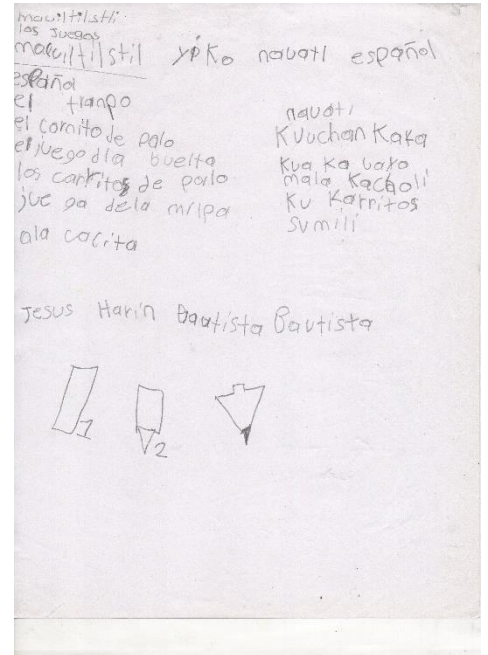 mauiltilstli
los Juegos
mauiltilstil yoko nauatl español
español
el tronpo
el cornito de palo
el juego dla buelta
los carritos de palo
jue ga dela milpa
ala cacita
nauati
Kuuchan Kaka
Kua Ka uayo
mala Kacholi
Ku Karritos
sumili
Jesus Harin Bautista Bautista
1
2